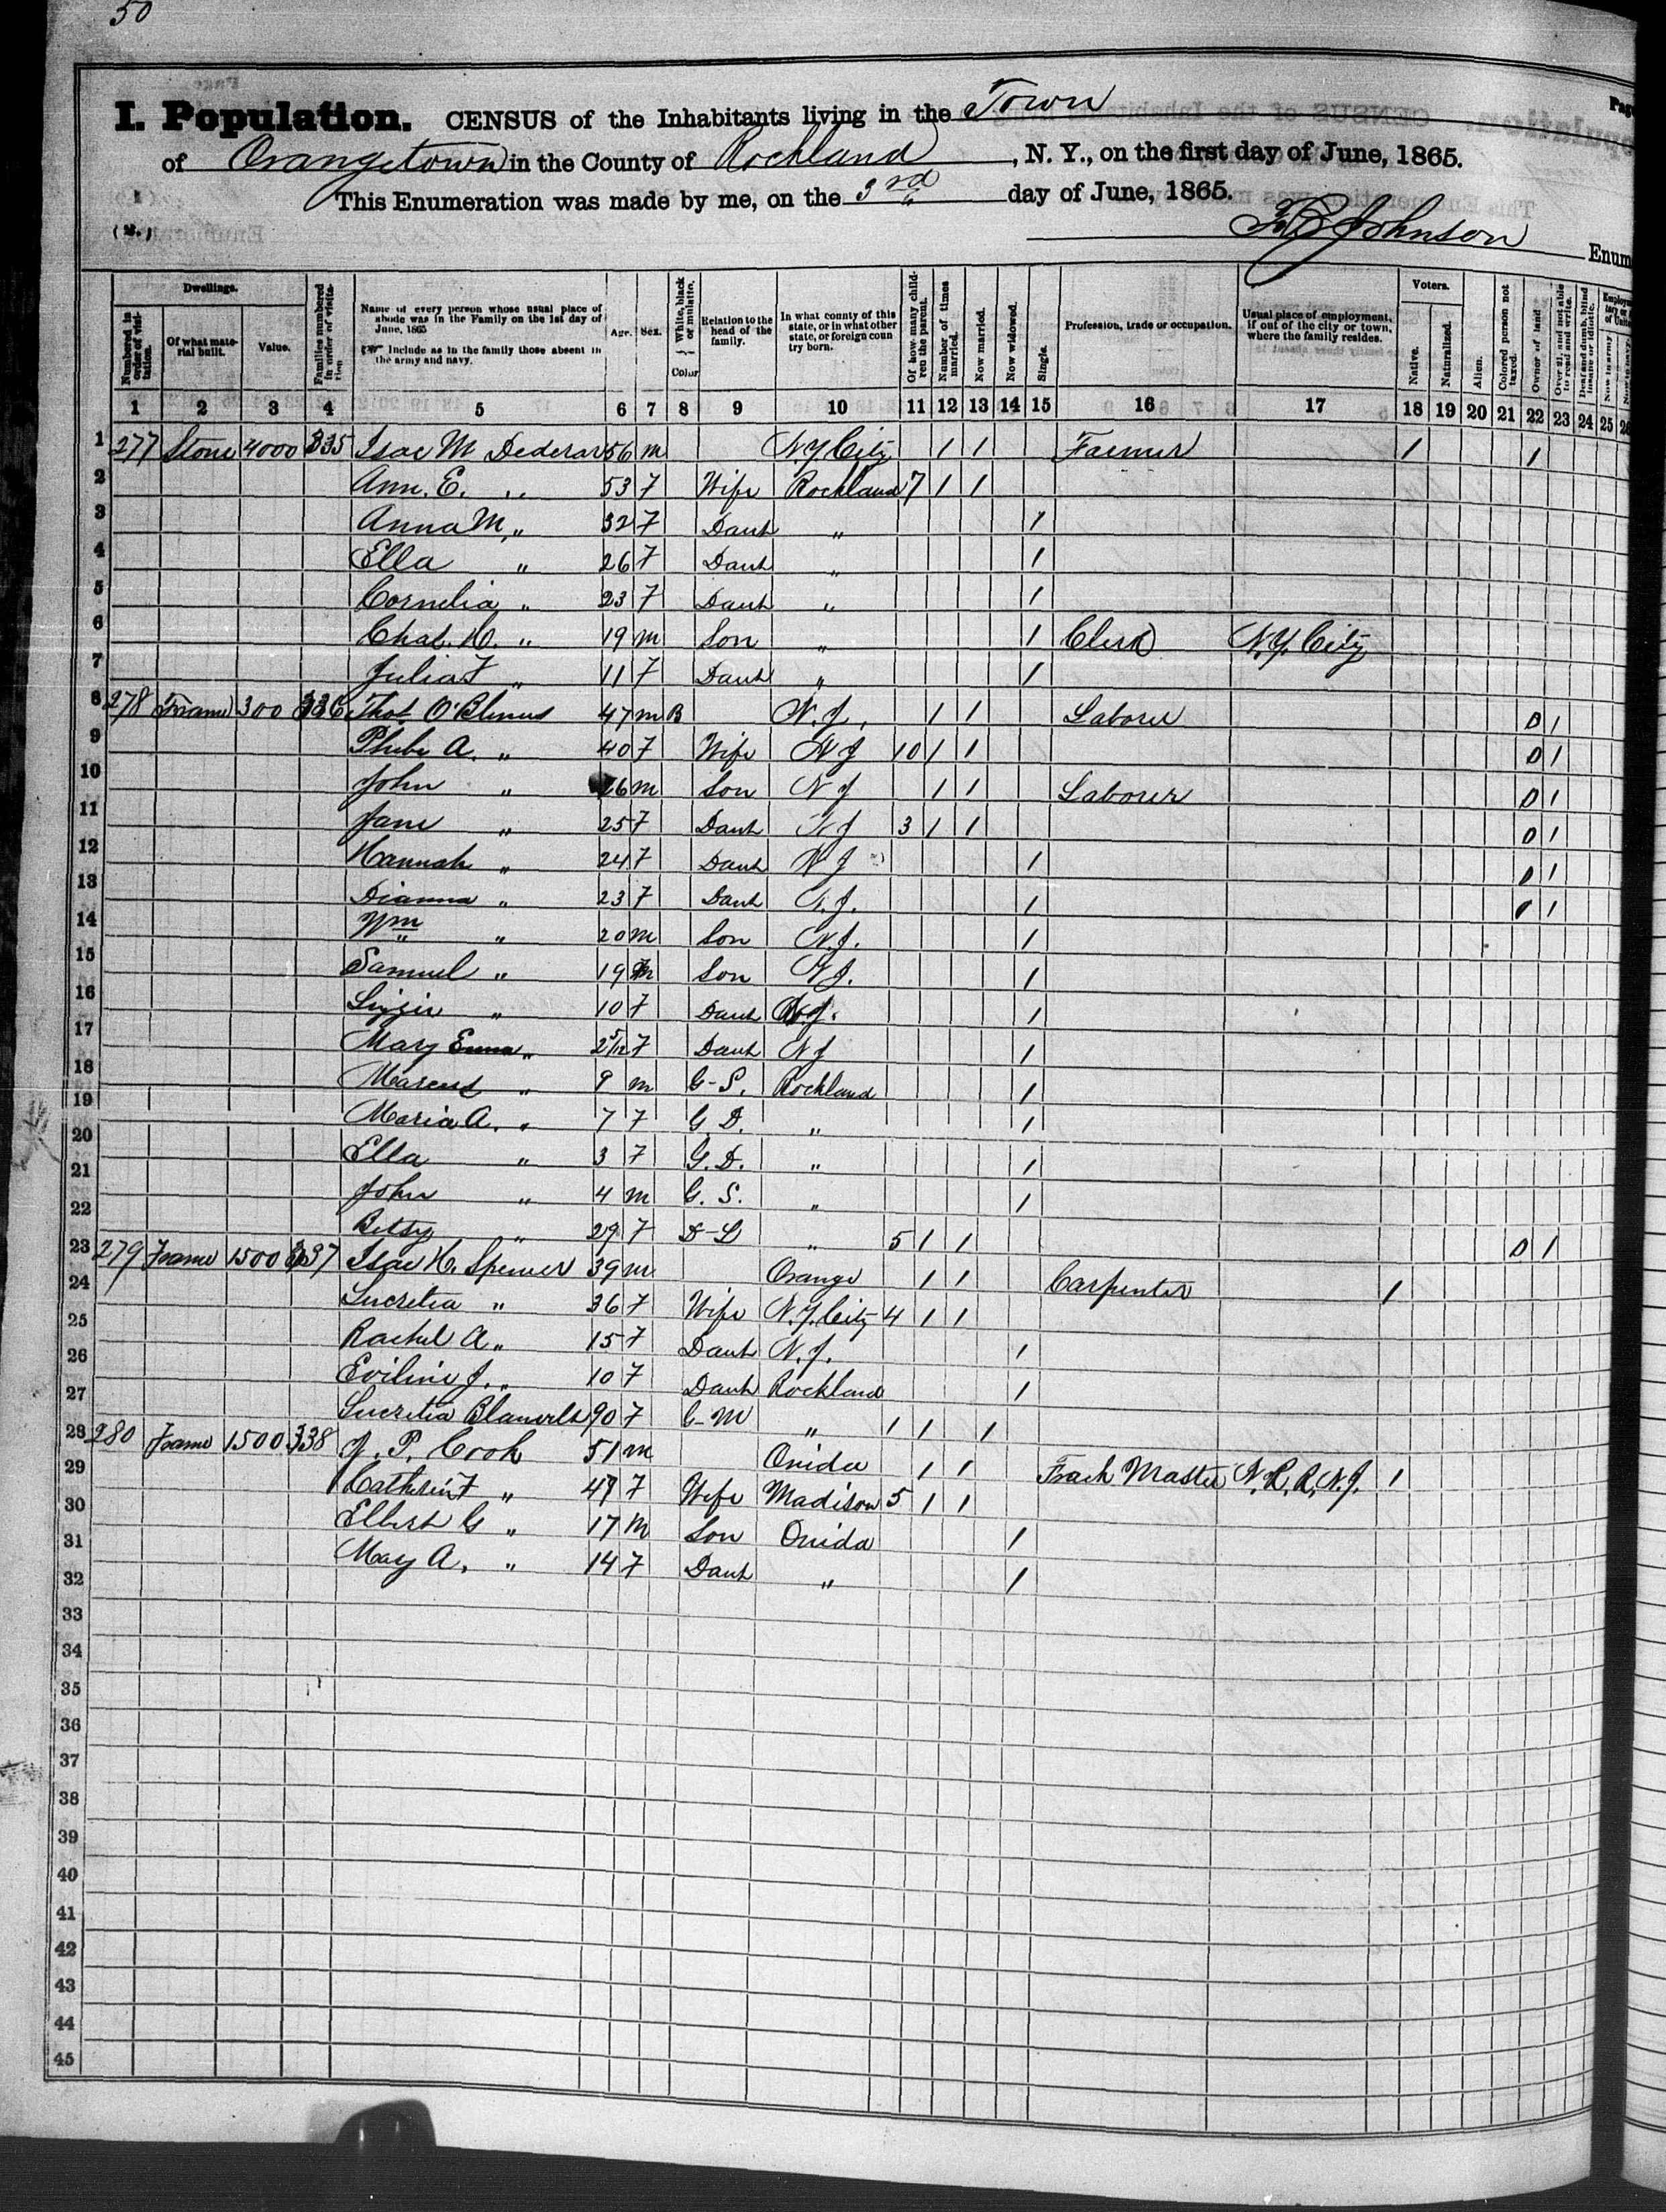 50
I. Population. CENSUS of the Inhabitants living in the Town
of Orangetown in the County of Rockland, N. Y., on the first day of June, 1865.
This Enumeration was made by me, on the 3rd day of June, 1865.
Johnson Enum
Dwellings.
Numbered in order of visitation.
Of what material built.
Value.
Families numbered in order of visitation
Name of every person whose usual place of abode was in the Family on the 1st day of June, 1865
Include as in the family those absent in the army and navy.
Age.
Sex.
White, black or mulatto.
Color
Relation to the head of the family.
In what county of this state, or in what other state, or foreign coun try born.
Of how many children the parent.
Number of times married.
Now married.
Now widowed.
Single.
Profession, trade or occupation.
Usual place of employment, if out of the city or town, where the family resides.
Voters.
Native.
Naturalized.
Alien.
Colored person not taxed.
Owner of land
Over 21 and not able to read and write.
Deaf and dumb, blind insane or idiotic.
1 2 3 4 5 6 7 8 9 10 11 12 13 14 15 16 17 18 19 20 21 22 23 24 25
1 277 Stone 4000 335 Isac M 56 m N Y City 1 1 Farmer 1 1
2 Ann. E. " 53 F Wife Rockland 7 1 1
3 Anna M. " 32 F Dauh " 1
4 Ella " 26 F Dauh " 1
5 Cornelia " 23 F Dauh " 1
6 Chas. H. " 19 m Son " 1 Clerk N.Y. City
7 Julia F " 11 F Dauh " 1
8 278 Frame 300 336 Thos 47 m B N.J. 1 1 Laborer 0 1
9 Phebe A. " 40 F Wife N J 10 1 1 0 1
10 John " 26 m Son N J 1 1 Laborer 0 1
11 Jane " 25 F Dauh N J 3 1 1 0 1
12 Hannah " 24 F Dauh N J 1 0 1
13 Dianna " 23 F Dauh N.J. 1 0 1
14 Wm " 20 m Son N.J. 1
15 Samuel " 19 m Son N J. 1
16 Lizzie " 10 F Dauh N.J. 1
17 Mary Emma " 2 5/12 F Dauh N J 1
18 Marcus " 9 m G-S. Rockland 1
19 Maria A. " 7 F G.D. " 1
20 Ella " 3 F G.D. " 1
21 John " 4 m G. S. " 1
22 Betsy " 29 F D-L " 5 1 1 0 1
23 279 Frame 1500 337 Isac H. Spencer 39 m Orange 1 1 Carpenter 1
24 Lucretia " 36 F Wife N.Y. City 4 1 1
25 Rachel A " 15 F Dauh N.J. 1
26 Eviline J. " 10 F Dauh Rockland 1
27 Lucretia Blauvelt 90 F G-M " 1 1 1
28 280 Frame 1500 338 J. P. Cook 51 m Onida 1 1 Track Master N.R.R. N.J. 1
29 Cathrin F " 47 F Wife Madison 5 1 1
30 Elbert G " 17 M Son Onida 1
31 May A. " 14 F Dauh " 1
32
33
34
35
36
37
38
39
40
41
42
43
44
45